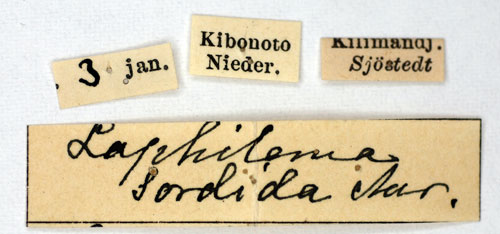 3 jan.
Kibonoto
Nieder.
Kilimandj.
Sjöstedt
Laphilema
sordida Aur.